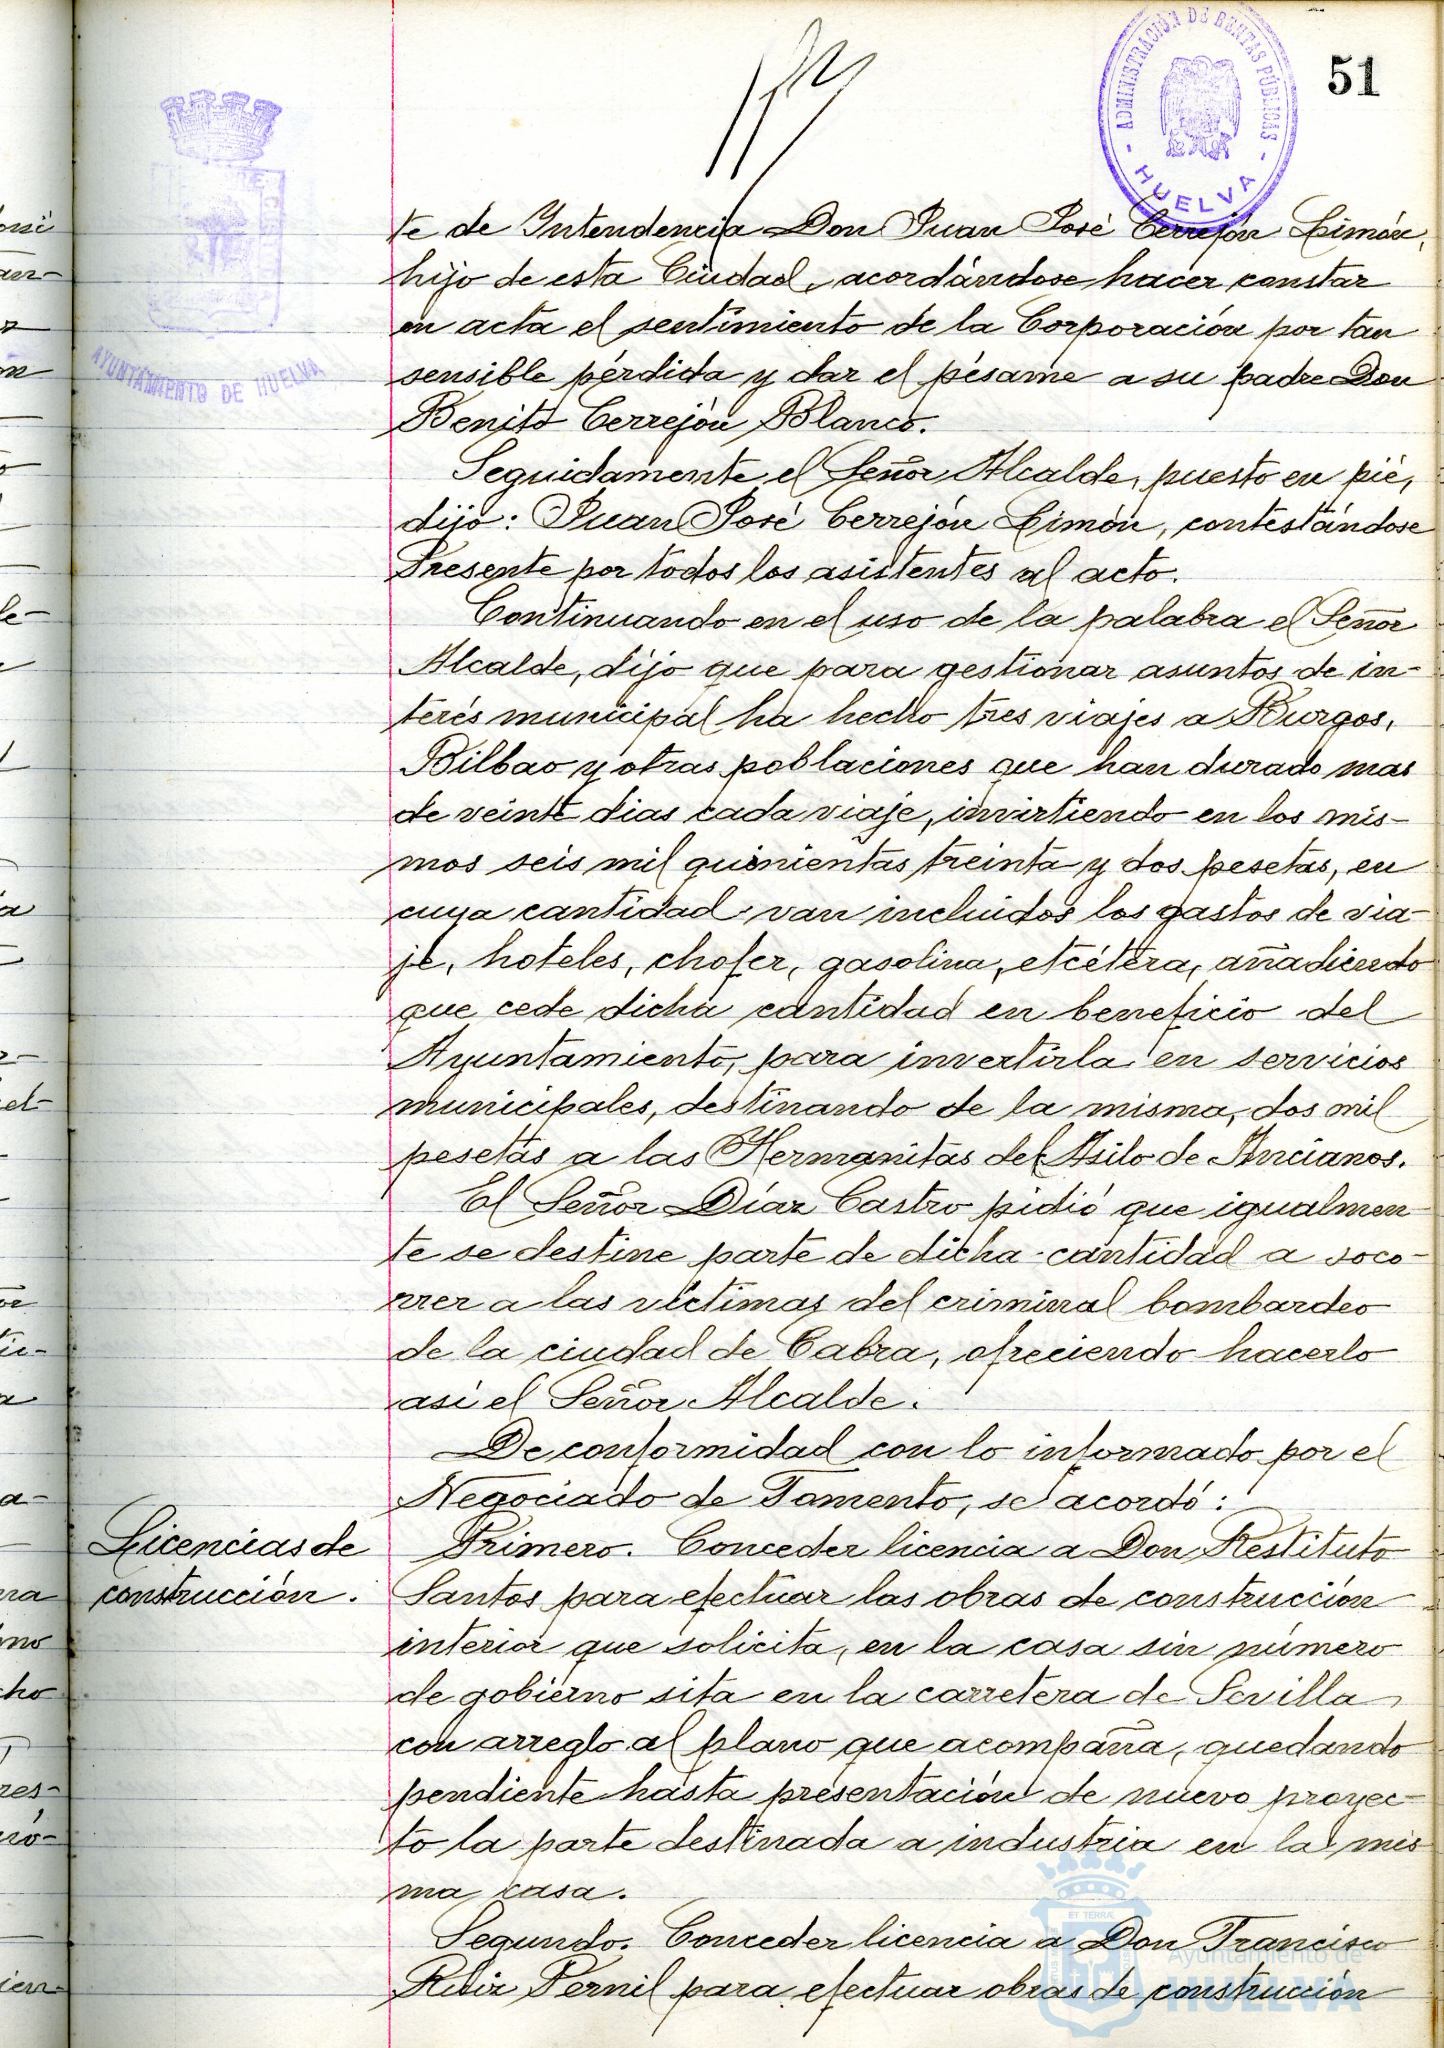 51
ADMINISTRACIÓN DE RENTAS PÚBLICAS
HUELVA
AYUNTAMIENTO DE HUELVA
te de Intendencia Don Juan José Cerrejón Limón,
hijo de esta Ciudad, acordándose hacer constar
en acta el sentimiento de la Corporación por tan
sensible pérdida y dar el pésame a su padre Don
Benito Cerrejón Blanco.
Seguidamente el Señor Alcalde, puesto en pié,
dijo: Juan José Cerrejón Limón, contestándose
Presente por todos los asistentes al acto.
Continuando en el uso de la palabra el Señor
Alcalde, dijo que para gestionar asuntos de in-
terés municipal ha hecho tres viajes a Burgos,
Bilbao y otras poblaciones que han durado mas
de veinte dias cada viaje, invirtiendo en los mis-
mos seis mil quinientas treinta y dos pesetas, en
cuya cantidad van incluidos los gastos de via-
je, hoteles, chofer, gasolina, etcétera, añadiendo
que cede dicha cantidad en beneficio del
Ayuntamiento, para invertirla en servicios
municipales, destinando de la misma, dos mil
pesetas a las Hermanitas del Asilo de Ancianos.
El Señor Díaz Castro pidió que igualmen-
te se destine parte de dicha cantidad a soco-
rrer a las víctimas del criminal bombardeo
de la ciudad de Cabra, ofreciendo hacerlo
asi el Señor Alcalde.
De conformidad con lo informado por el
Negociado de Fomento, se acordó:
Licencias de
construcción.
Primero. Conceder licencia a Don Restituto
Santos para efectuar las obras de construcción
interior que solicita, en la casa sin número
de gobierno sita en la carretera de Sevilla
con arreglo al plano que acompaña, quedando
pendiente hasta presentación de nuevo proyec-
to la parte destinada a industria en la mis
ma casa.
Segundo. Conceder licencia a Don Francisco
Pernil para efectuar obras de construcción
Ayuntamiento de
HUELVA